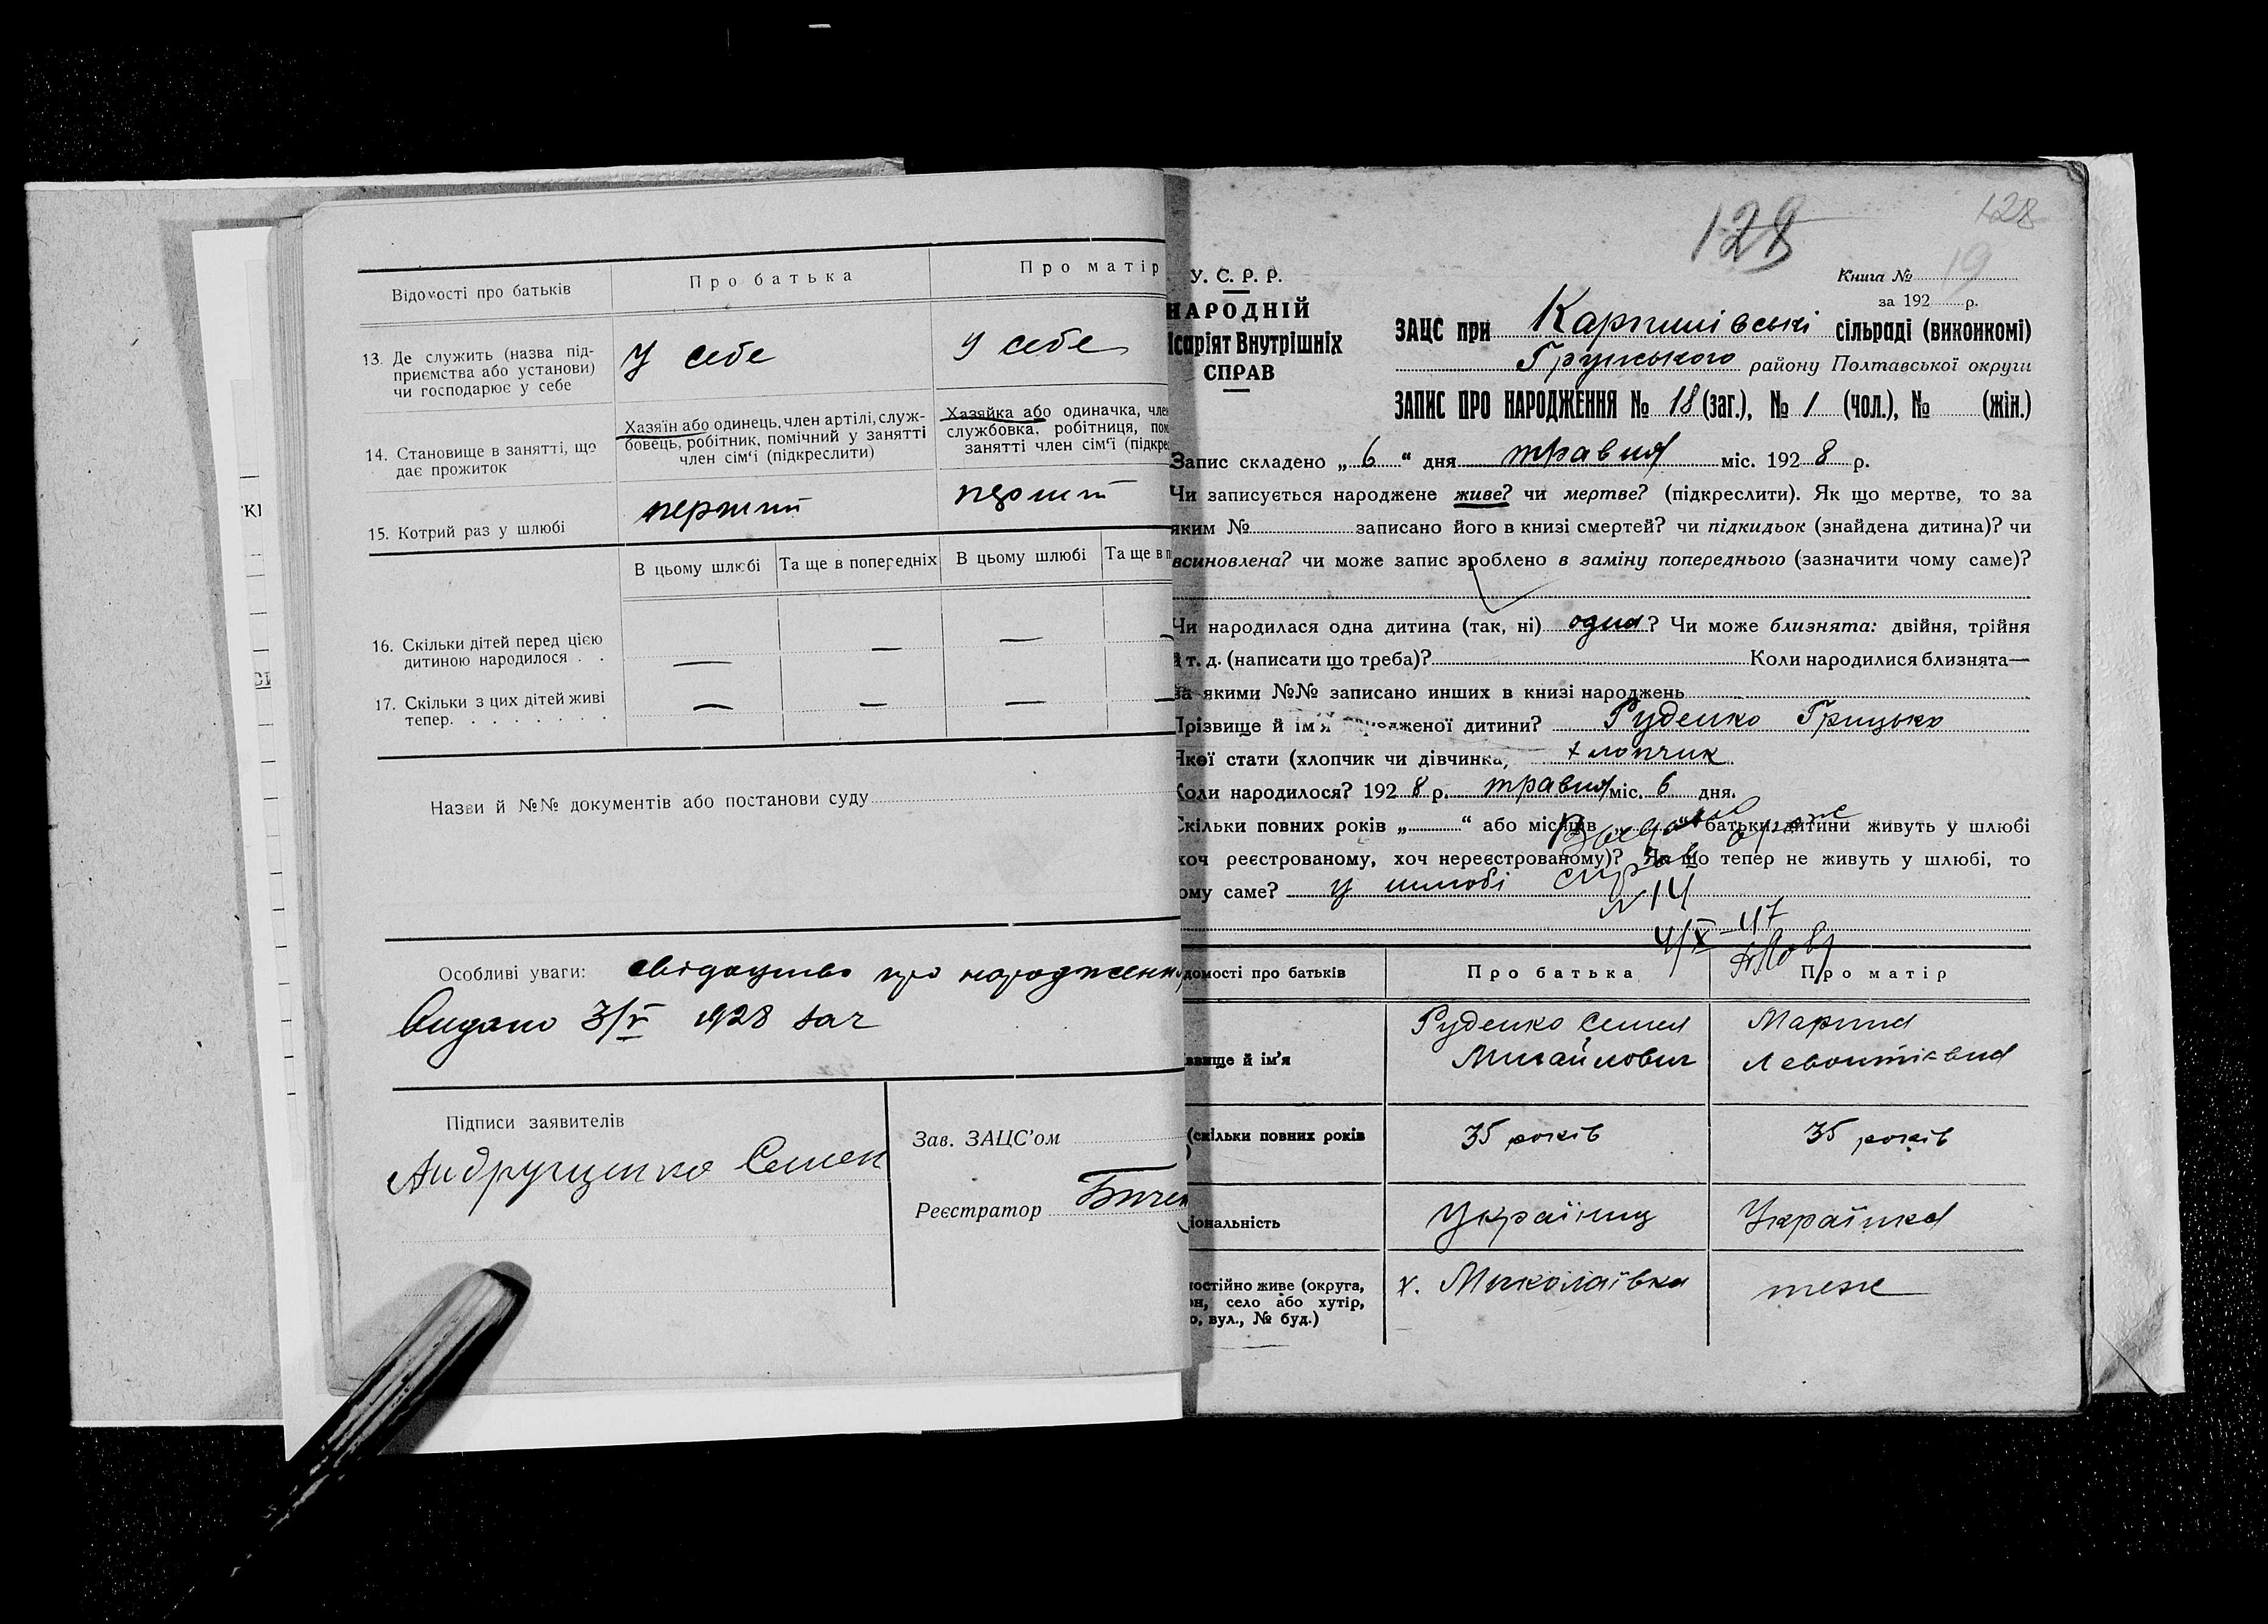 Відомості про батьків
Про батька
Про матір
13. Де служить (назва під-
приємства або установи)
чи господарює у себе
У себе
у себе
14. Становище в занятті, що
дає прожиток
Хазяїн або одинець, член артілі, служ-
бовець, робітник, помічний у занятті
член сім'ї (підкреслити)
Хазяйка або одиначка, член
службовка, робітниця, пом
занятті член сім'ї (підкре
15. Котрий раз у шлюбі
перший
перший
В цьому шлюбі
Та ще в попередніх
В цьому шлюбі
Та ще в п
16. Скільки дітей перед цією
дитиною народилося . .
— — — —
17. Скільки з цих дітей живі
тепер. . . . . . . .
— — — —
Назви й №№ документів або постанови суду
Особливі уваги: свідоцтво про народження
Видано 3/V 1928
Підписи заявителів
Андрущенко Семен
Зав. ЗАЦС'ом
Реєстратор
128
128
У. С. Р. Р.
НАРОДНІЙ
ісаріят Внутрішніх
СПРАВ
Книга № 19
за 192 р.
ЗАЦС при сільраді (виконкомі)
району Полтавської округи
ЗАПИС ПРО НАРОДЖЕННЯ № 18 (заг.), № 1 (чол.), № (жін.)
Запис складено „ 6 “ дня травня міс. 1928 р.
Чи записується народжене живе? чи мертве? (підкреслити). Як що мертве, то за
яким № записано його в книзі смертей? чи підкидьок (знайдена дитина)? чи
всиновлена? чи може запис зроблено в заміну попереднього (зазначити чому саме)?
Чи народилася одна дитина (так, ні) одна? Чи може близнята: двійня, трійня
й т. д. (написати що треба)? Коли народилися близнята—
за якими №№ записано инших в книзі народжень
Прізвище й ім'я народженої дитини? Руденко Грицько
Якої стати (хлопчик чи дівчинка, хлопчик
Коли народилося? 1928 р. травня міс. 6 дня.
Скільки повних років „ “ або місяців „ “ батьки дитини живуть у шлюбі
хоч реєстрованому, хоч нереєстрованому)? Як що тепер не живуть у шлюбі, то
ому саме? у шлюбі
№ 14
4/X-47
домості про батьків
Про батька
Про матір
звище й ім'я
Руденко Семен
Михайлович
Марина
Левонтіевна
(скільки повних років
35 років
35 років
іональність
Українец
Українка
постійно живе (округа,
он, село або хутір,
о, вул., № буд.)
х. Миколаївка
теж